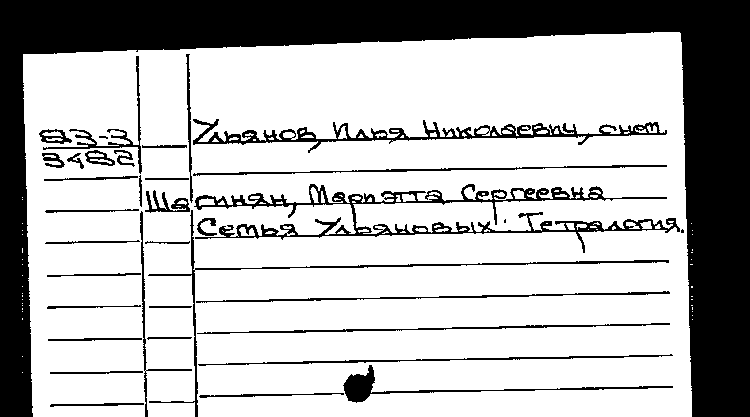 83-3
3482
Ульянов, Илья Николаевич, о нем.
Шагинян, Мариэтта Сергеевна
Семья Ульяновых: Тетралогия.